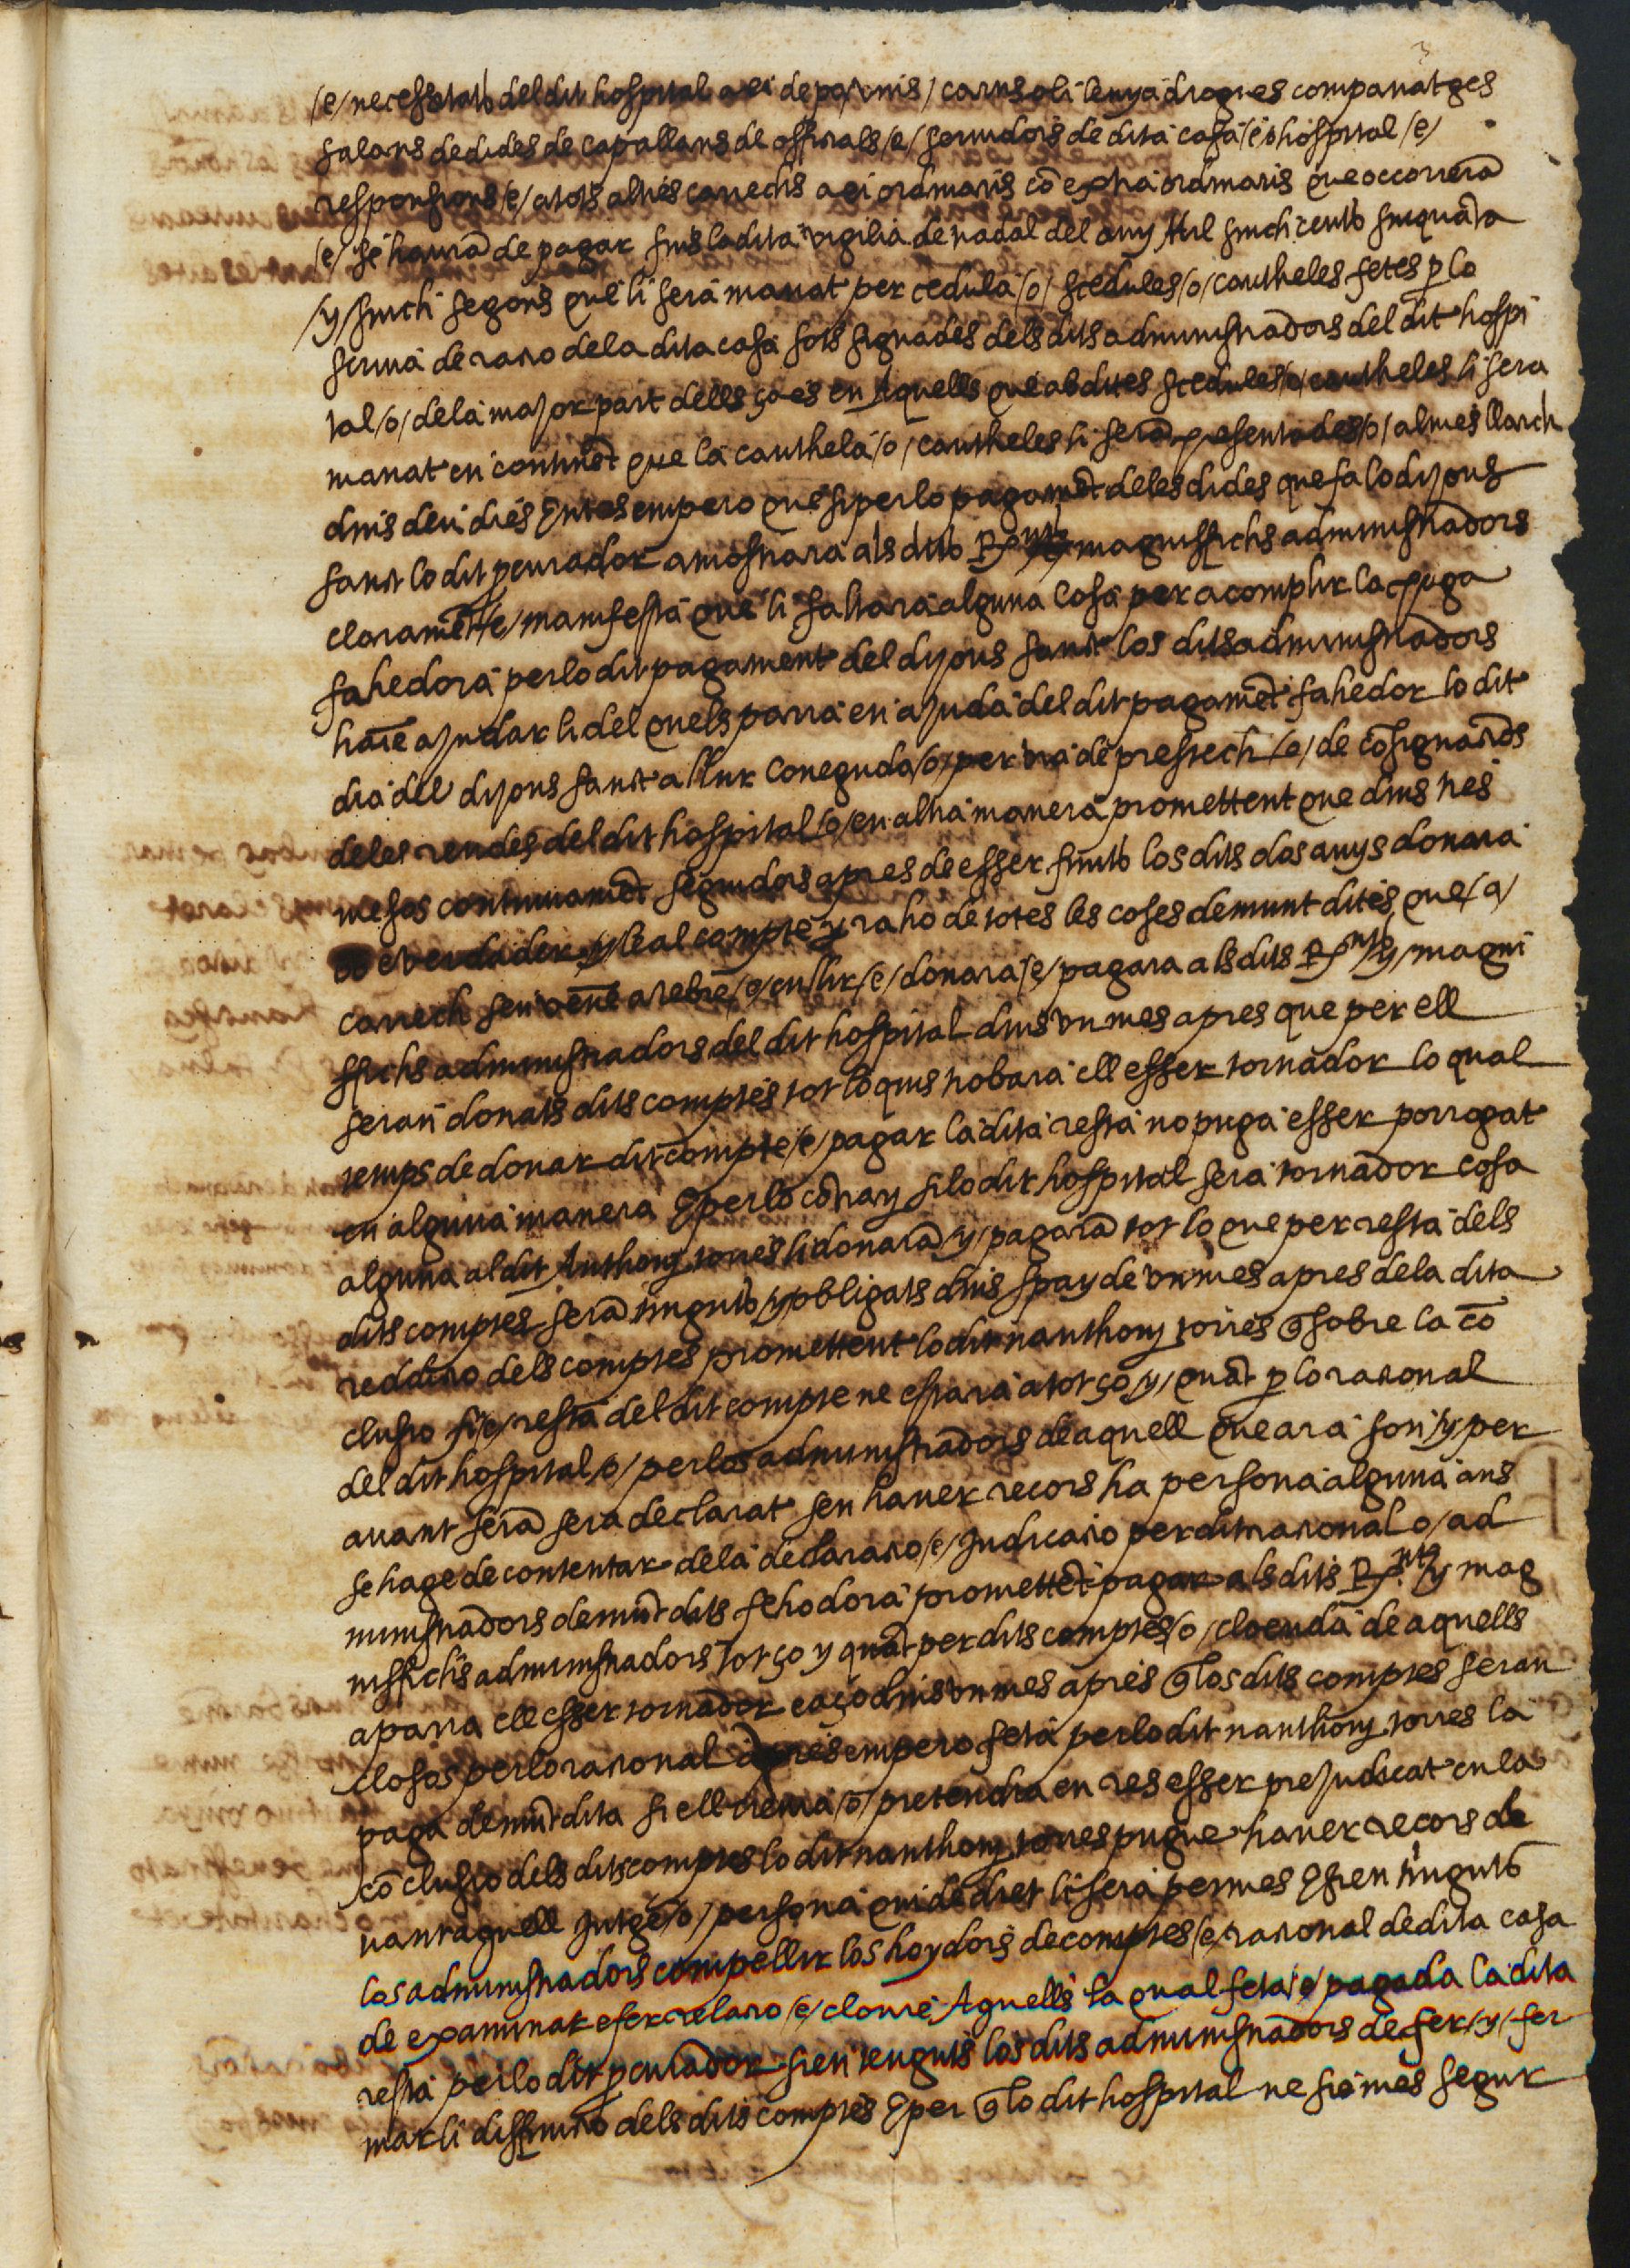 3
/e/ necessitats del dit hospital axi de pa / vins / carns oli lenya drogues companatges
salaris de dides de capallans de officials /e/ seruidors de dita casa /e/ o hospital /e/
responsions /e/ a tots altres carrechs axi ordinaris cō extraordinaris que occorrerā
/e/ se haurā de pagar fins la dita vigilia de nadal del any Mil sinch cents sinquāta
/y/ sinch segons que li sera manat per cedula /o/ scedules /o/ cautheles fetes p̱ lo
scriua de racio de la dita casa sots signades dels dits administradors del dit hospi
tal /o/ de la major part dells ço es en Aquells que ab dites scedules /o/ cautheles li sera
manat en continēt que la cauthela /o/ cautheles li serā presentades /o/ al mes llarch
dins deu dies Entes empero que si per lo pagamēt de les dides que fa lo dijous
sanct lo dit p̱curador amostrara als dits Rnts /y/ magnifichs administradors
claramēt /e/ manifesta que li faltara alguna cosa per a complir la paga
fahedora per lo dit pagament del dijous sanct los dits administradors
haiē ajudar li del quels parra en ajuda del dit pagamēt fahedor lo dit
dia del dijous sanct a llur coneguda /o/ per via de prestech /e/ de cōsignacions
de les rendes del dit hospital /o/ en altra manera promettent que dins tres
mesos continuamēt seguidors apres de esser finits los dits dos anys donara
bo e verdader /y/ leal compte /y/ raho de totes les coses demunt dites que /a/
carrech seu vēne a rebre /e/ cullir /e/ donara /e/ pagara als dits Rnts /y/ magni
fichs administradors del dit hospital dins vn mes apres que per ell
seran donats dits comptes tot lo quis trobara ell esser tornador lo qual
temps de donar dit compte /e/ pagar la dita resta no puga esser porrogat
en alguna manera E per lo cōtrary si lo dit hospital sera tornador cosa
alguna al dit Anthony torres li donarā /y/ pagarā tot lo que per resta dels
dits comptes serā tinguts /y/ obligats dins spay de vn mes apres de la dita
reddicio dels comptes promettent lo dit nanthony torres q̄ sobre la cō
clusio fi /e/ resta del dit compte ne estara a tot ço /y/ quāt p̱ lo racional
del dit hospital /o/ per los administradors de aquell que ara son /y/ per
auant serā sera declarat sen hauer recors ha persona alguna ans
se hage de contentar de la declaracio /e/ Judicacio per dit racional o / ad
ministradors demūt dits fehodora promettēt pagar als dits Rnts /y/ mag
nifichs administradors tot ço y quāt per dits comptes /o/ cloenda de aquells
aparra ell esser tornador e aço dins vn mes apres q̄ los dits comptes seran
closos per lo racional apres empero feta per lo dit nanthony torres la
paga demūt dita si ell volrra /o/ pretendra en res esser prejudicat en la
cōclusio dels dits comptes lo dit nanthony torres pugue hauer recors de
uant aquell Jutge /o/ persona qui de dret li sera permes E sien tinguts
los administradors compellir los hoydors de comptes /e/ racional de dita casa
de examinar e fer relacio /e/ cloure Aquells la qual feta /e/ pagada la dita
resta per lo dit p̱curador sien tenguts los dits administradors de fer /y/ fer
mar li diffinicio dels dits comptes E per q̄ lo dit hospital ne sie mes segur